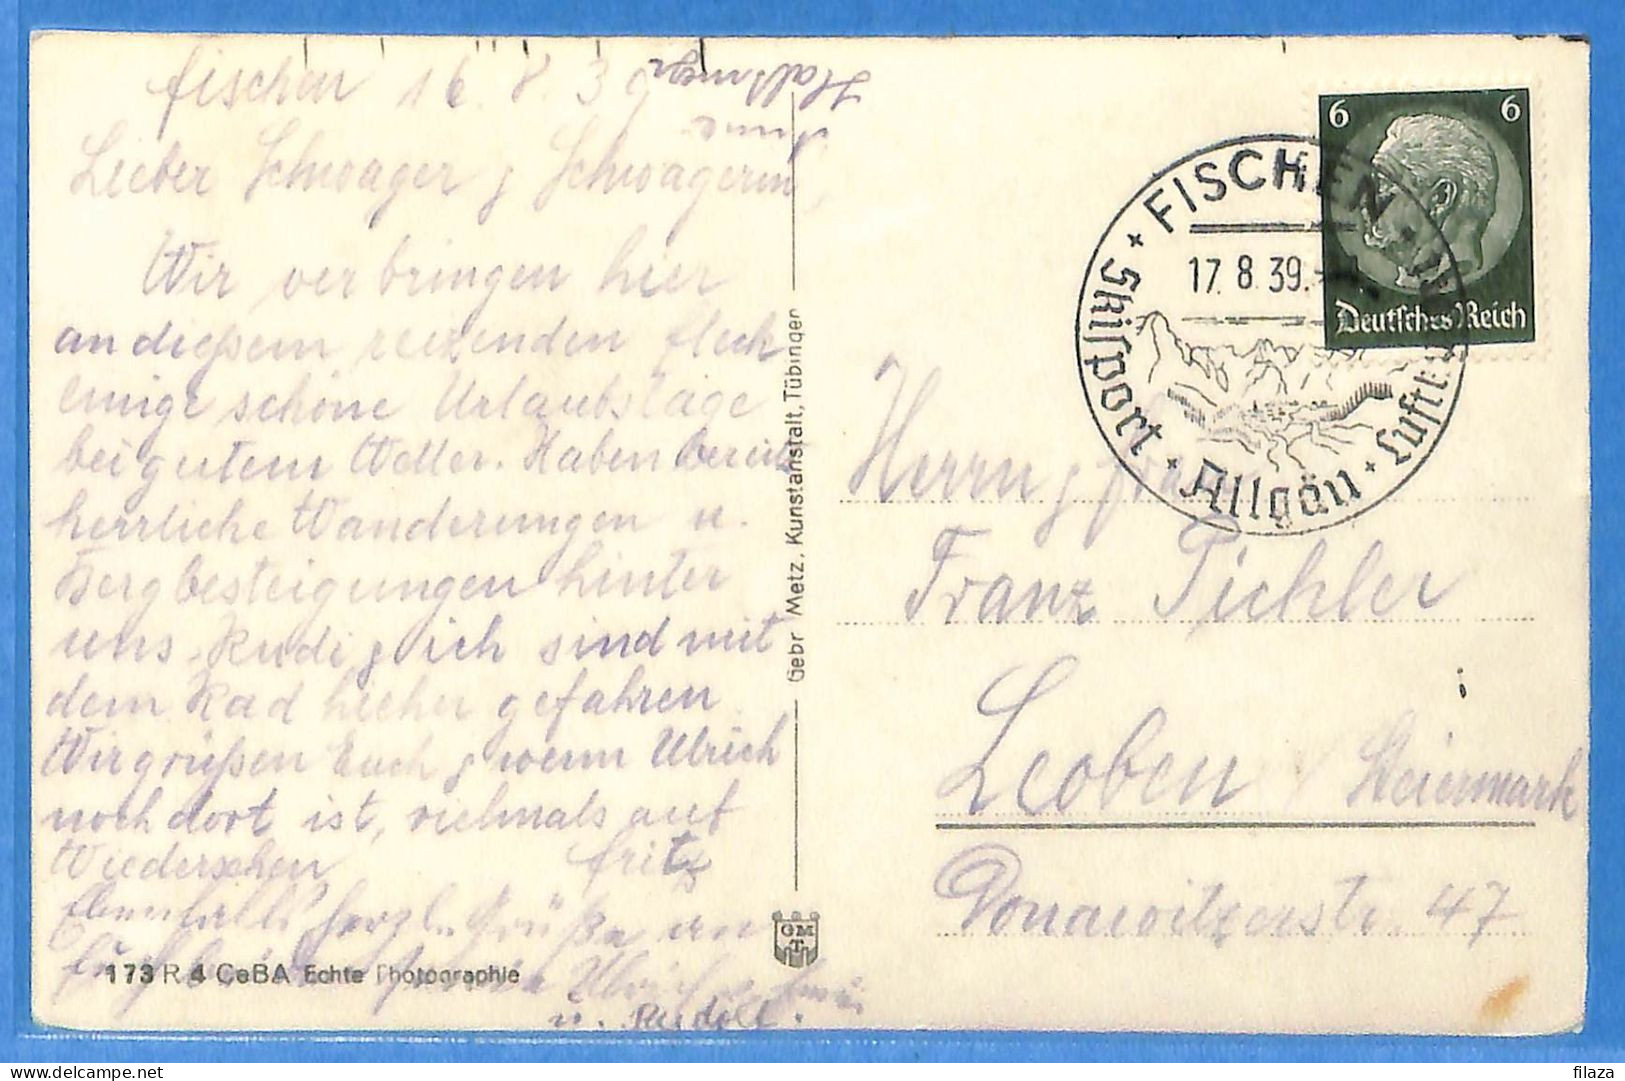 fischen 16. 8. 39
Lieber Schwager u Schwägerin,
Wir verbringen hier
an dießem reizenden fleck
einige schöne Urlaubstage
bei gutem Wetter. Haben bereits
herrliche Wanderungen u.
Bergbesteigungen hinter
uns. Rudi u ich sind mit
dem Rad hieher gefahren
Wir grüßen Euch u wenn Ulrich
noch dort ist, vielmals auf
Wiedersehen fritz
Ebenfalls herzl. Grüße an
Ulrich
u. Rudolf.
173 R 4 CeBA Echte Photographie
Gebr Metz. Kunstanstalt, Tübingen
GMT
FISCHEN
17. 8. 39.
Skisport · Allgäu ·
6 6
Deutsches Reich
Herrn u frau
Franz Pichler
Leoben / Steiermark
Donawitzerstr. 47
filaza